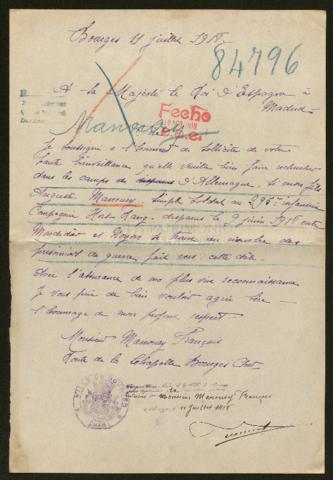 Bourges 11 juillet 1918
84796
A sa Majesté le Roi d'Espagne à
Madrid
Fecho
Je soussigné a l'honneur de solliciter de votre
haute bienveillance, qu'elle veuille bien faire rechercher
dans les camps de d'Allemagne, le mon fils
Auguste Simple Soldat au 298e infanterie
Compagnie Hors Rang, disparu le 9 juin 1918 entre
Montdidier et Noyon se trouve au nombre des
prisonniers de guerre fait vers cette date.
Avec l'assurance de ma plus vive reconnaissance
Je vous prie de bien vouloir agréer Sire
l'hommage de mon profond respect
Monsieur François
Route de la Chapelle Bourges Cher
Monsieur François
11 Juillet 1918